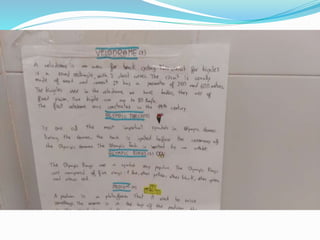 VELODROME
A velodrome is an area for track cycling. The circuit for bicycles
is a closed rectangle, with 2 bent curves. The circuit is usually
made of wood and cement. It has a perimeter of 250 and 400 metres.
The bicycles used in the velodrome no have brakes, they are of
fixed pinion. This bicycle can up to 80 km/h.
The first velodrome was in the 19th century.
OLYMPIC TORCH
Is one of the most important symbols in Olympic Games.
During the Games, the torch is before the ceremony of
the Olympic Games. The Olympic torch is to an athlete
OLYMPIC RINGS
The Olympic Rings are a symbol very popular. The Olympic Rings
are composed of five rings: one yellow, other black, other green,
and other red.
PODIUM
A podium is a platform that it used to raise
something. The winner is in the top of the podium, the